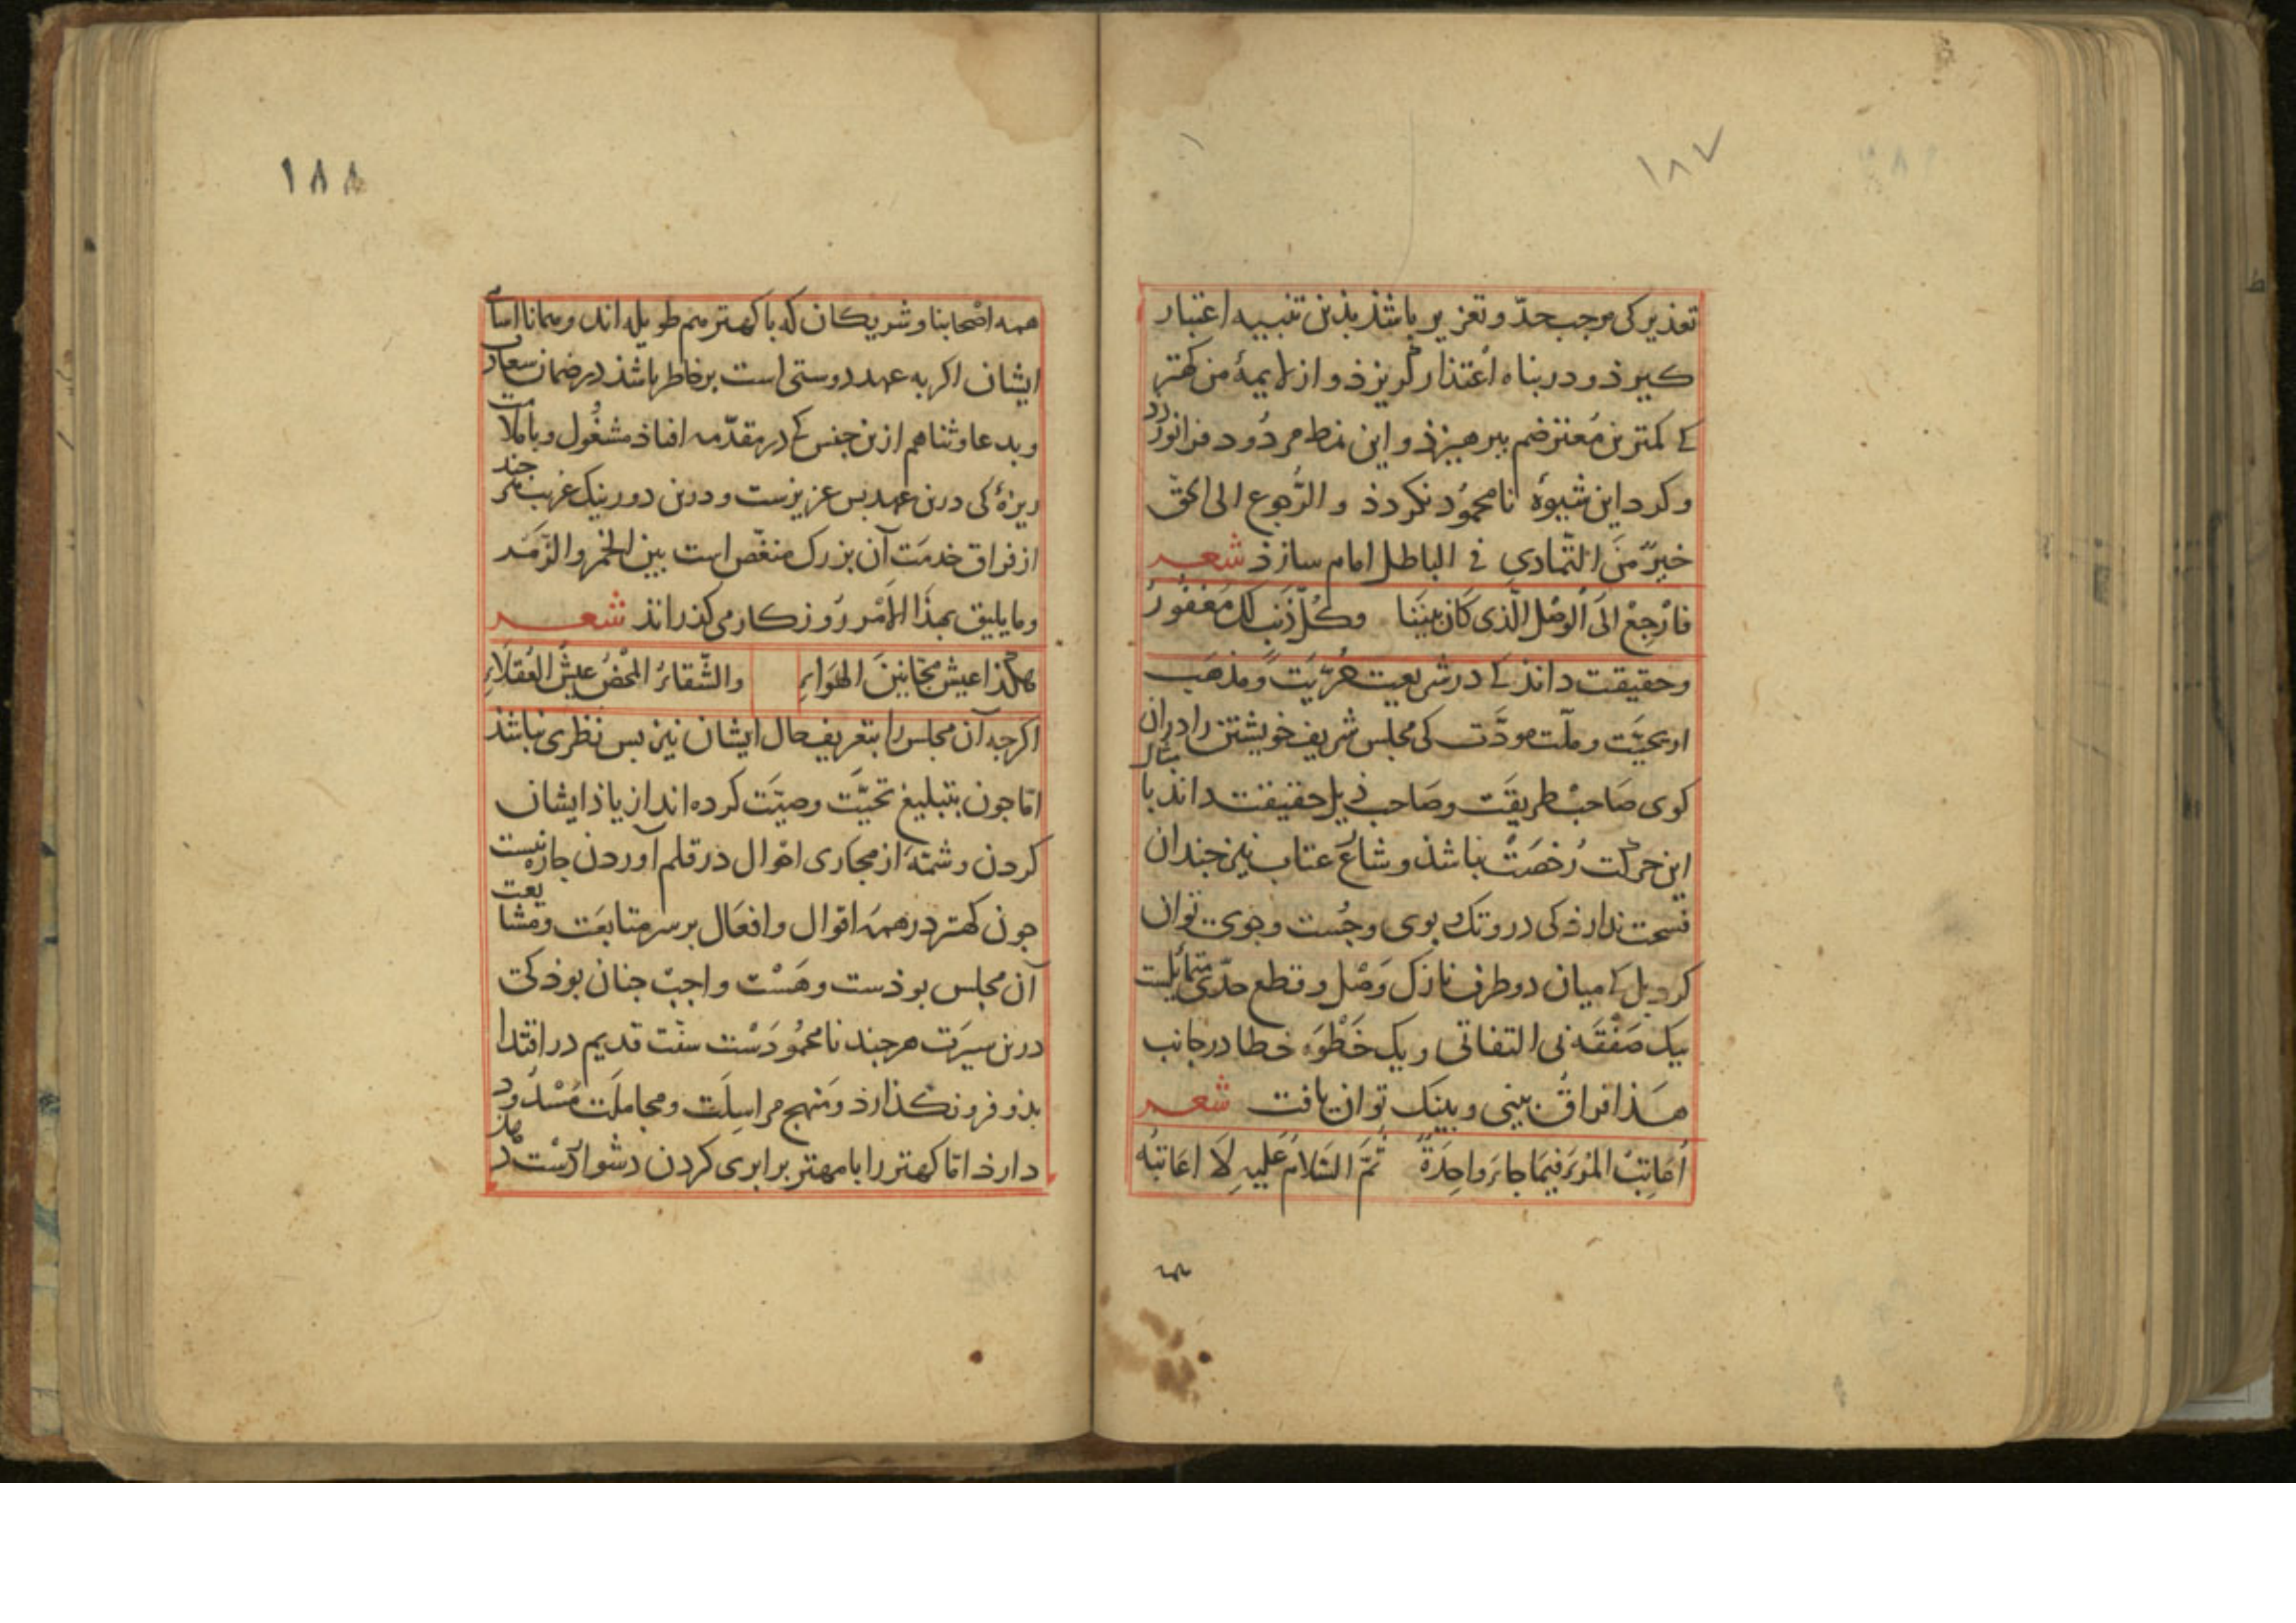 ١٨٧
تعذیر کی موجب حدّ و تعزیر باشذ بذین تنبیه اعتبار
کیرذ و در پناه اعتذار کریزذ و از لایمهٔ من کهتر
کی کمترین مُعترضم ببرهیزذ و این نمط مردود فرانوردد
و کرد این شیوهٔ نامحمُود نکردذ و الرُّجوع الی الحق
خیرٌ مّنَ التّمادی فی الباطل امام سازذ شعــر
فَارْجِعْ الَی اْلوَصْلِ الَّذی کَانَ بَیْنَنَا وکُلُّ ذَنْبٍ لَکَ مَغْفُورُ
و حقیقت داند کی در شریعت حُرّیَت و مذهَب
اریحیَّت و ملّت مودَّت کی مجلس شریف خویشتن را در ان
کوی صَاحبْ طریقَت و صَاحب ذیل حقیقت داند با
این حرکت رُخصَتْ نباشذ و شاعَ عتاب نیز جندان
فسحت ندارذ کی در و تک و بوی و جُست و جوی توان
کرد بل کی میان دو طرف نازک وَصْل و قطع حدّی
بیک صَفقَه نی التفاتی و یک خَطْوَه خطا در جانب
هَذا فراقُ بینی و بینَک توان یافت شعــر
اُعَاتِبُ المْرَء فیمَا جاءَ واحِدَةً ثُمَّ السَّلامُ عَلَیهِ لَا اعَاتبُهُ
١٨٨
همه اصْحابنا و شریکان که با کهتر هم طویله اند و همانا اسامی
ایشان اکر به عهد دوستی است بر خاطر باشذ در ضمان سعادت
و بدعا و ثنا هم ازین جنس کی در مقدّمه افتاذ مشغُول و با ملامت
ریزهٔ کی درین عهد بس عزیزست و درین دور نیک غریب هر جند
از فراق خدمَت آن بزرک منغّص است بین الخمر و الزّمَر
و ما یلیق بهذَا الاَمْر رُوزکار می کذراند شعــر
هکَذا عیشُ مجَانینَ الهَوَاءِ والشَّقاءُ المْحْضُ عیشُ العُقلَاءِ
اکرجه آن مجلس را بتعریف حال ایشان نیز بس نظری نباشذ
امّا جون بتبلیغ تحیَّت وصیّت کرده اند از یاذ ایشان
کردن و شمّهٔ از مجاری احْوال در قلم آوردن جاره نیست
جون کهتر در همهَ اقوال و افعَال بر سر متابعَت و مشایعت
آن مجلس بوذست و هَسْت واجبْ جنان بوذ کی
درین سیرَت هر جند نامحمُودَسْت سنّت قدیم در اقتدا
بذو فرو نکذارذ و مَنهج مراسلَت و مجاملَت مَسْدُود
دارذ امّا کهتر را با مهتر برابری کردن دشوارَسْت